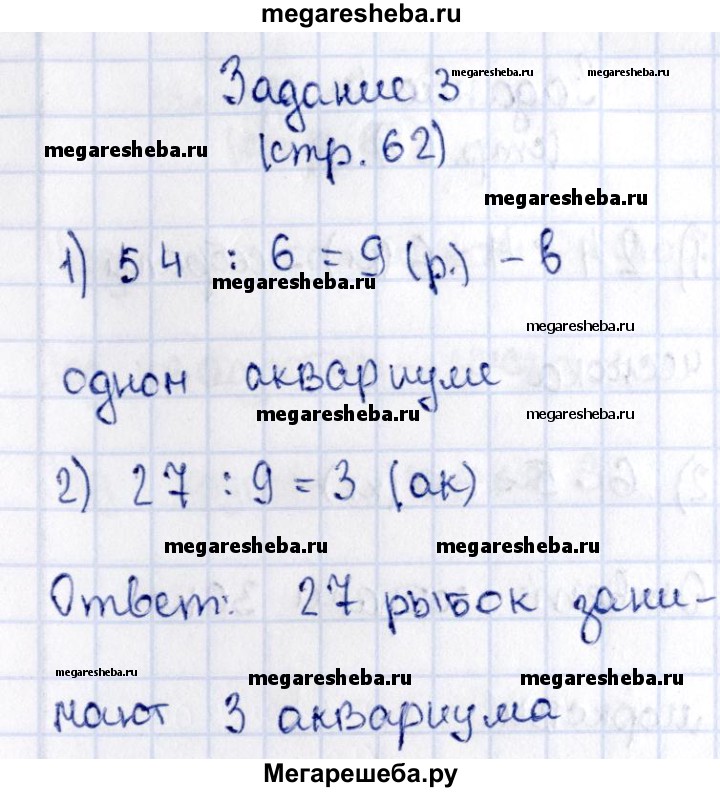 megaresheba.ru
Задание 3 megaresheba.ru megaresheba.ru
megaresheba.ru (стр. 62)
megaresheba.ru
1) 54 : 6 = 9 (р.) - в
megaresheba.ru
megaresheba.ru
одном аквариуме
megaresheba.ru megaresheba.ru
2) 27 : 9 = 3 (ак)
megaresheba.ru megaresheba.ru
Ответ: 27 рыбок зани-
megaresheba.ru megaresheba.ru megaresheba.ru
мают 3 аквариума
Мегарешеба.ру